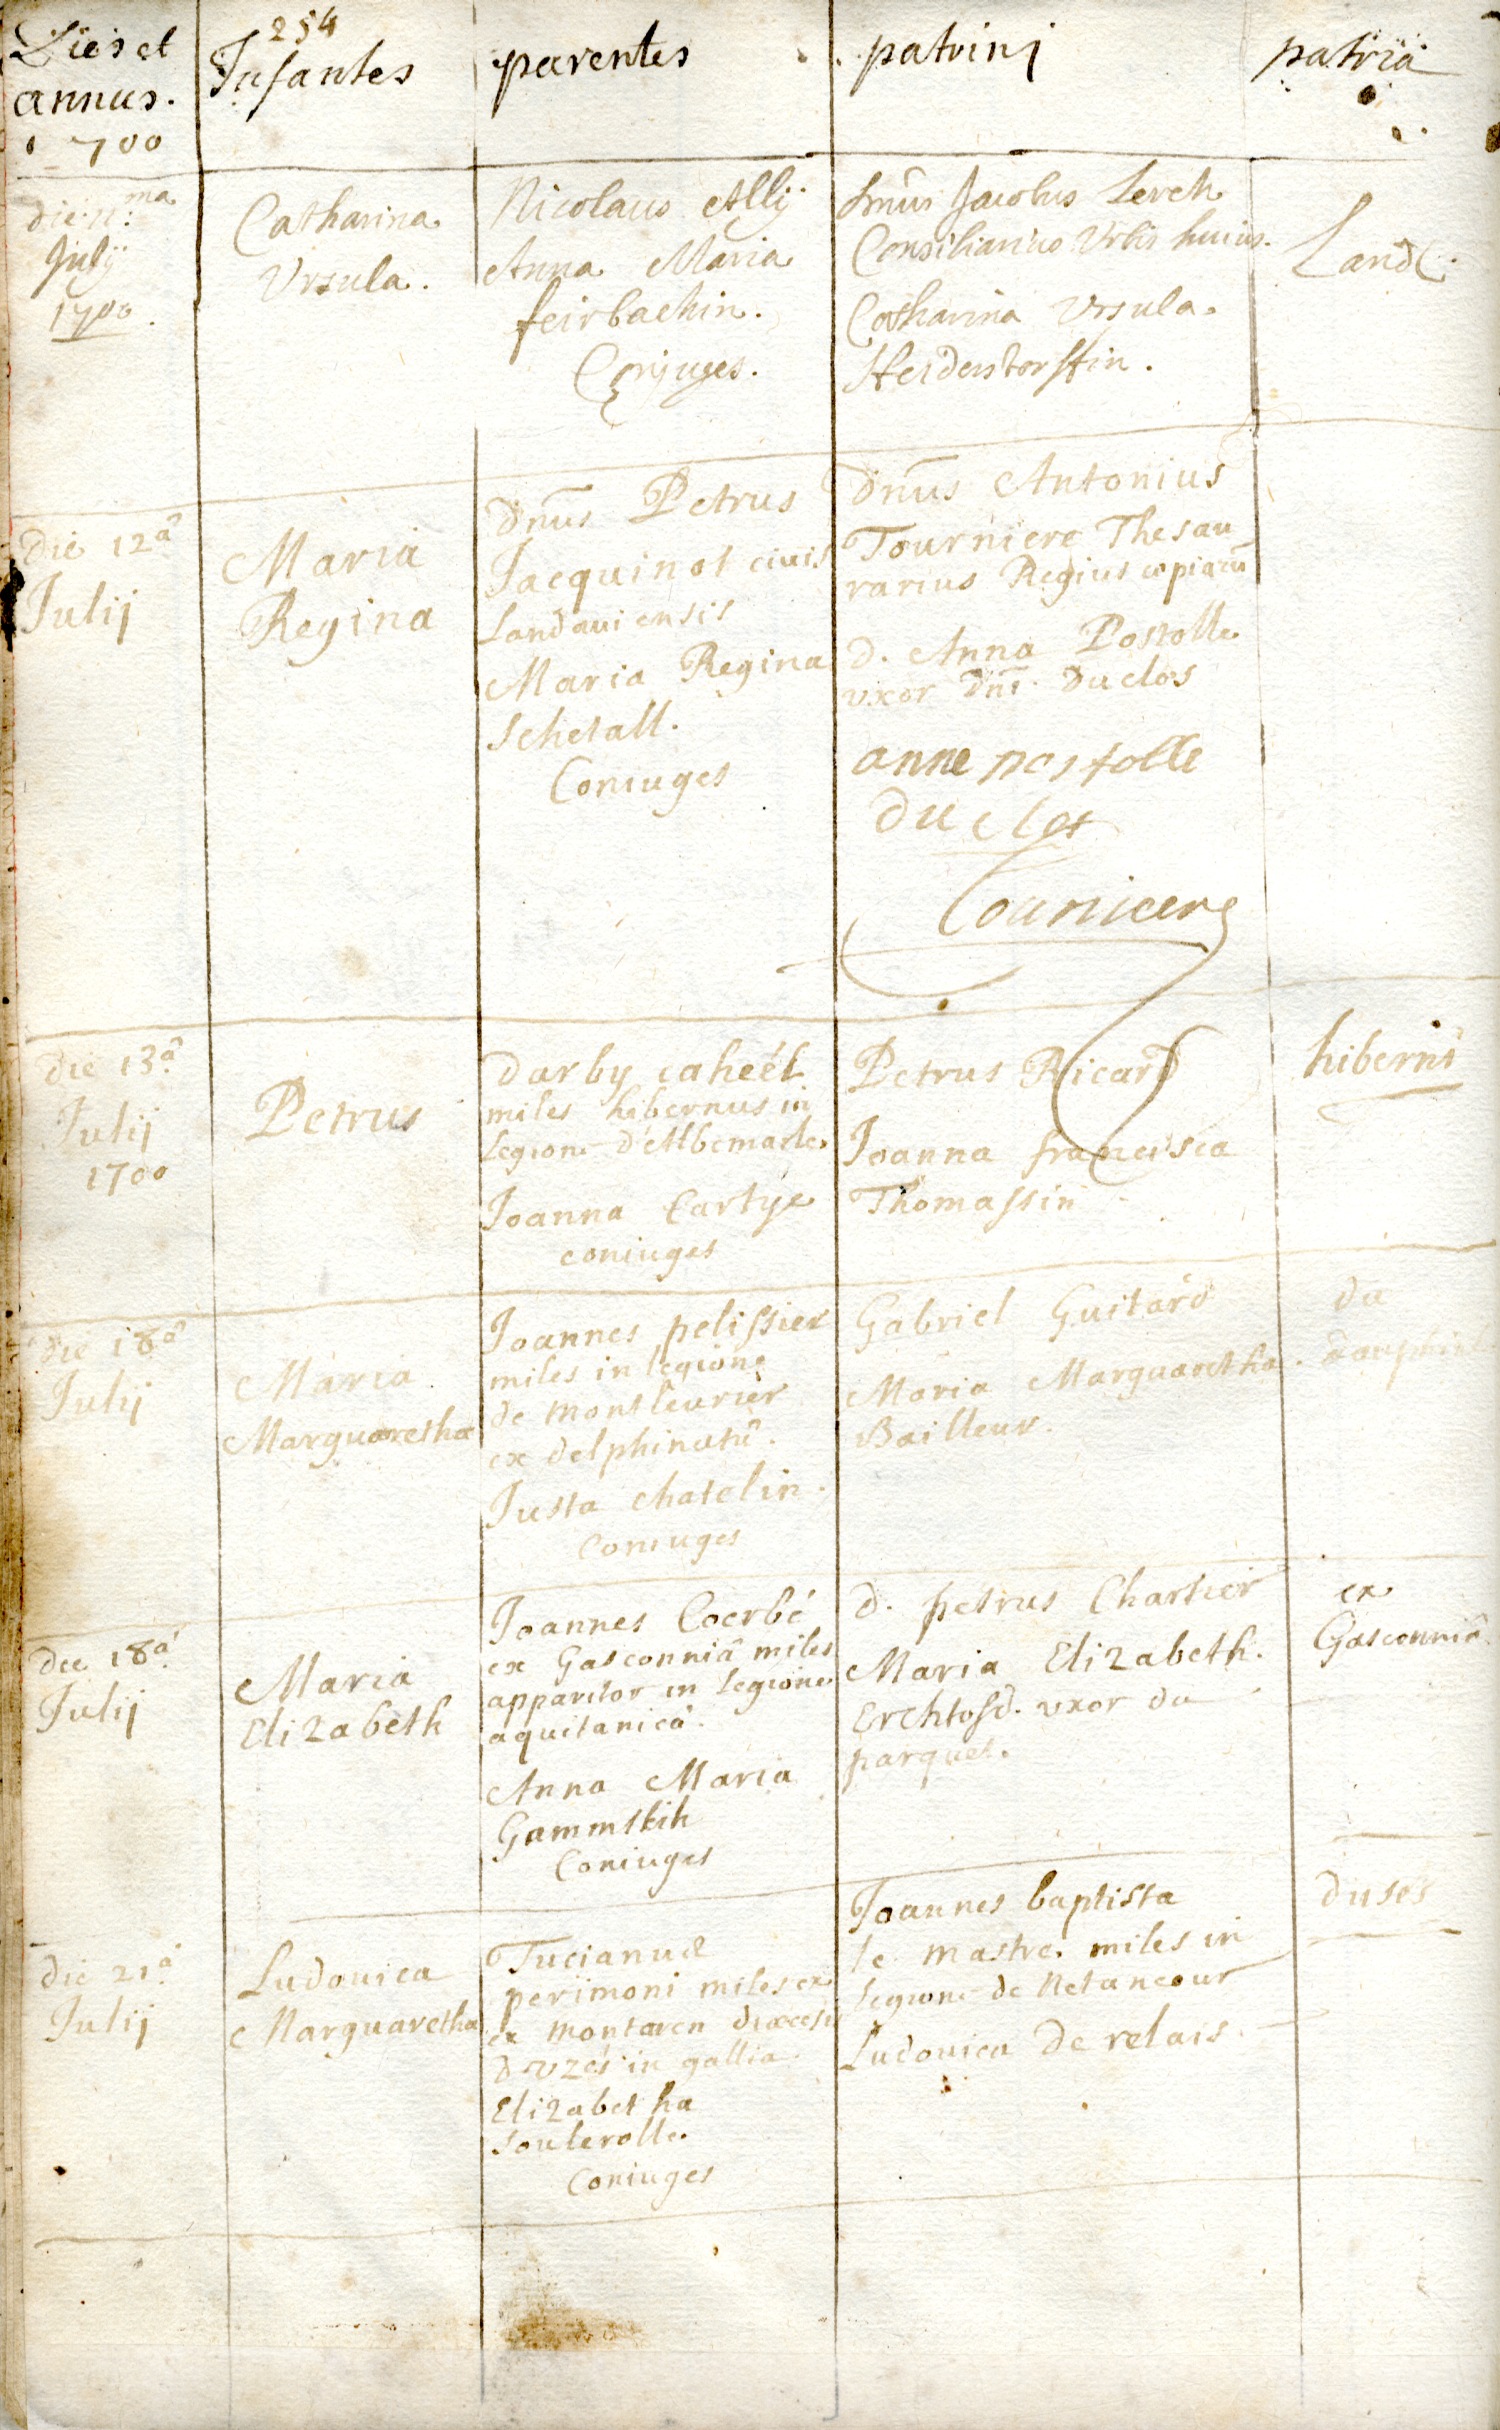 254
Dies et
annus.
1700
Infantes
parentes
patrini
patria
die 11.ma
Julij
1700.
Catharina
Ursula.
Nicolaus Ally
Anna Maria
feirbachin.
Conjuges.
Jacobus Lerch
Consiliarius Urbis huius.
Catharina Ursula.
Land
die 12â
Julij
Maria
Regina
dnus Petrus
Jacquinot ciuis
Landauiensis
Maria Regina
Schetall.
Coniuges
dnus Antonius
Tourniere Thesau
rarius Regius copiarū
d. Anna Postolle
uxor dni. Duclos
anne postolle
du clos
Tourniere
die 13â
Julij
1700
Petrus
darby caheél
miles hibernus in
Legione d'Albemarle.
Joanna Cartye
coniuges
Petrus Ricard
Joanna francisca
Thomassin
hiberni
die 18â
Julij
Maria
Marguaretha
Joannes pelissier
miles in legione
de montleurier
ex delphinatû.
Justa chatelin.
Coniuges
Gabriel Guitard
Maria Marguaretha.
Bailleur.
du
dauphiné
die 18â
Julij
Maria
Elizabeth
Joannes Coerbé
ex Gasconniâ miles
apparitor in Legione
aquitanicâ.
Anna Maria
Gammskih
Coniuges
d. petrus Chartier
Maria Elizabeth.
uxor du
parquet.
ex
Gasconniâ.
die 21â
Julij
Ludouica
Marguaretha
perimoni miles ex
ex montaren dioecesi
d'uzés in gallia.
Elizabetha
souterolle.
Coniuges
Joannes baptista
le mastre. miles in
legione de Netancour
Ludouica de relais.
dusés